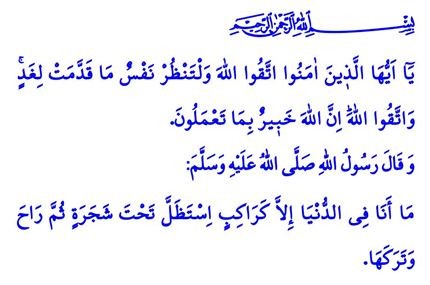 بِسْمِ اللهِ الرَّحْمٰنِ الرَّحِيمِ
يَٓا اَيُّهَا الَّذ۪ينَ اٰمَنُوا اتَّقُوا اللهَ وَلْتَنْظُرْ نَفْسٌ مَا قَدَّمَتْ لِغَدٍۚ
وَاتَّقُوا اللهَۜ اِنَّ اللهَ خَب۪يرٌ بِمَا تَعْمَلُونَ.
وَ قَالَ رَسُولُ اللهِ صَلَّى اللهُ عَلَيْهِ وَسَلَّمَ:
مَا أَنَا فِى الدُّنْيَا إِلاَّ كَرَاكِبٍ اِسْتَظَلَّ تَحْتَ شَجَرَةٍ ثُمَّ رَاحَ
وَتَرَكَهَا.